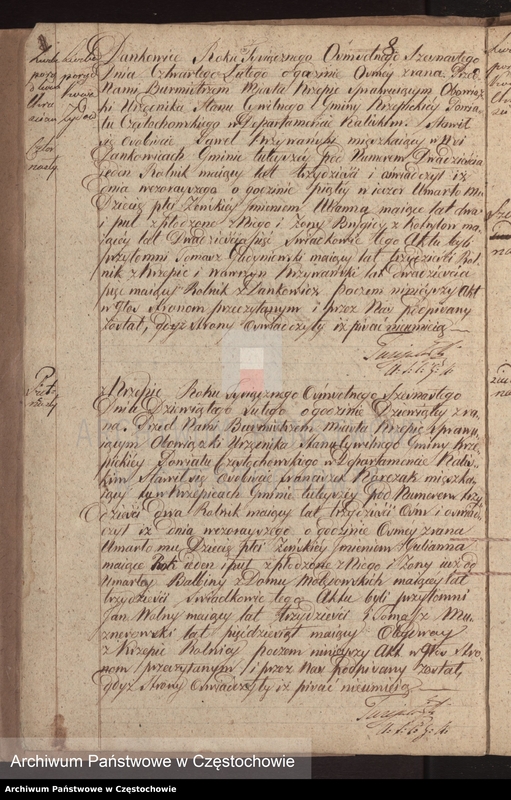 8
Dankowice Roku Tysiącznego Osmsetnego Szesnastego
Dnia Czwartego Lutego o godzinie Osmey zrana. Przed
Nami Burmistrzem Miasta Krzepic Sprawuiącym Obowiąz-
ki Urzędnika Stanu Cywilnego Gminy Krzepickiey Powia-
tu Częstochowskiego w Departamencie Kaliskim. Stawił
się Osobiście Paweł Krzywański mięszkaiący w Wsi
Dankowicach Gminie tuteyszey pod Numerem Dwadzieścia
ieden Rolnik maiący lat trzydzieści i oswiadczył iż
dnia wczorayszego o godzinie piąty wieczor Umarło Mu
Dziecię płci Żeńskiey Imieniem Maanna maiące lat dwa
i puł spłodzone z Niego i Żony Brygidy z Kotyłow ma-
iący lat Dwadzieścia pięć Swiadkowie tego Aktu byli
przytomni Tomasz maiący lat trzydzieści Rol-
nik z Krzepic i Wawrzyn Krzywański lat dwadzieścia
pięć maiący Rolnik z Dankowic poczem ninieyszy Akt
w głos Stronom przeczytanym i przez Nas podpisany
został, gdyż Strony Oswiadczyły iż pisać nieumieią
z Krzepic Roku Tysiącznego Osmsetnego Szesnastego
Dnia Dziewiątego Lutego o godzinie Dziewiąty zra-
na. Przed Nami Burmistrzem Miasta Krzepic Sprawu-
iącym Obowiązki Urzędnika Stanu Cywilnego Gminy Krze-
pickiey Powiatu Częstochowskiego w Departamencie Kalis-
kim Stawił się Osobiście Franciszek Karczak mięszka-
iący tu w Krzepicach Gminie tuteyszy pod Numerem trzy-
dzieści dwa Rolnik maiący lat trzydzieści Osm i oswiad-
czył iż dnia wczorayszego o godzinie Osmey zrana
Umarło mu Dziecię płci Żeńskiey Imieniem Julianna
maiące Rok ieden i puł spłodzone z Niego i Żony iuż do
Umarłey Balbiny z Domu maiącey lat
trzydzieści Swiadkowie tego Aktu byli przytomni
Jan Wolny maiący lat trzydzieści i Tomasz Mu-
znerowski lat pięćdziesiąt maiący Obydway
z Krzepic Rolnicy poczem ninieyszy Akt w Głos Stro-
nom przeczytanym i przez Nas podpisany został,
gdyż Strony Oswiadczyły iż pisać nieumieią
Archiwum Państwowe w Częstochowie
Archiwum Państwowe w Częstochowie